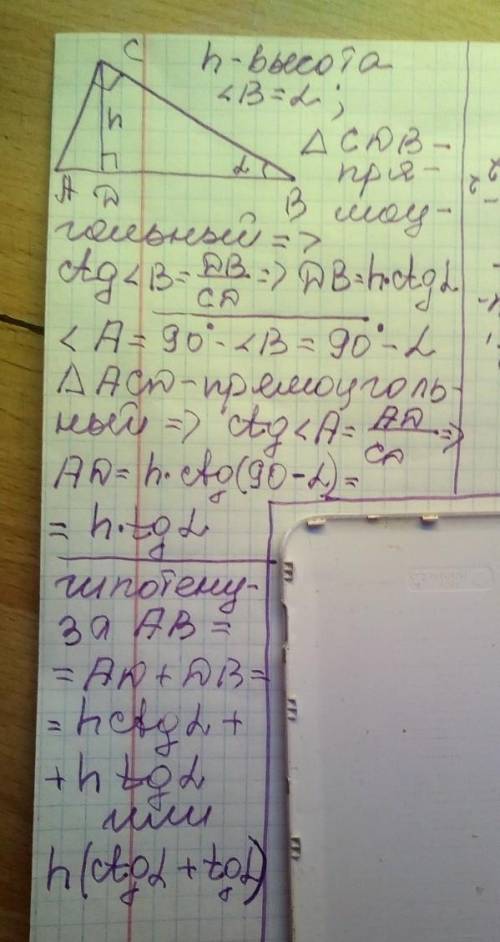 C
h - высота
<B = α ;
h
△ CDB -
α
пря -
A D
B
моу -
гольный =>
ctg<B = DB/CD => DB = h·ctgα
<A = 90° - <B = 90° - α
△ ACD - прямоуголь-
ный => ctg<A = AD/CD =>
AD = h·ctg(90 - α) =
= h·tgα
гипотену-
за AB =
= AD + DB =
= hctgα +
+ h tgα
или
h(ctgα + tgα)